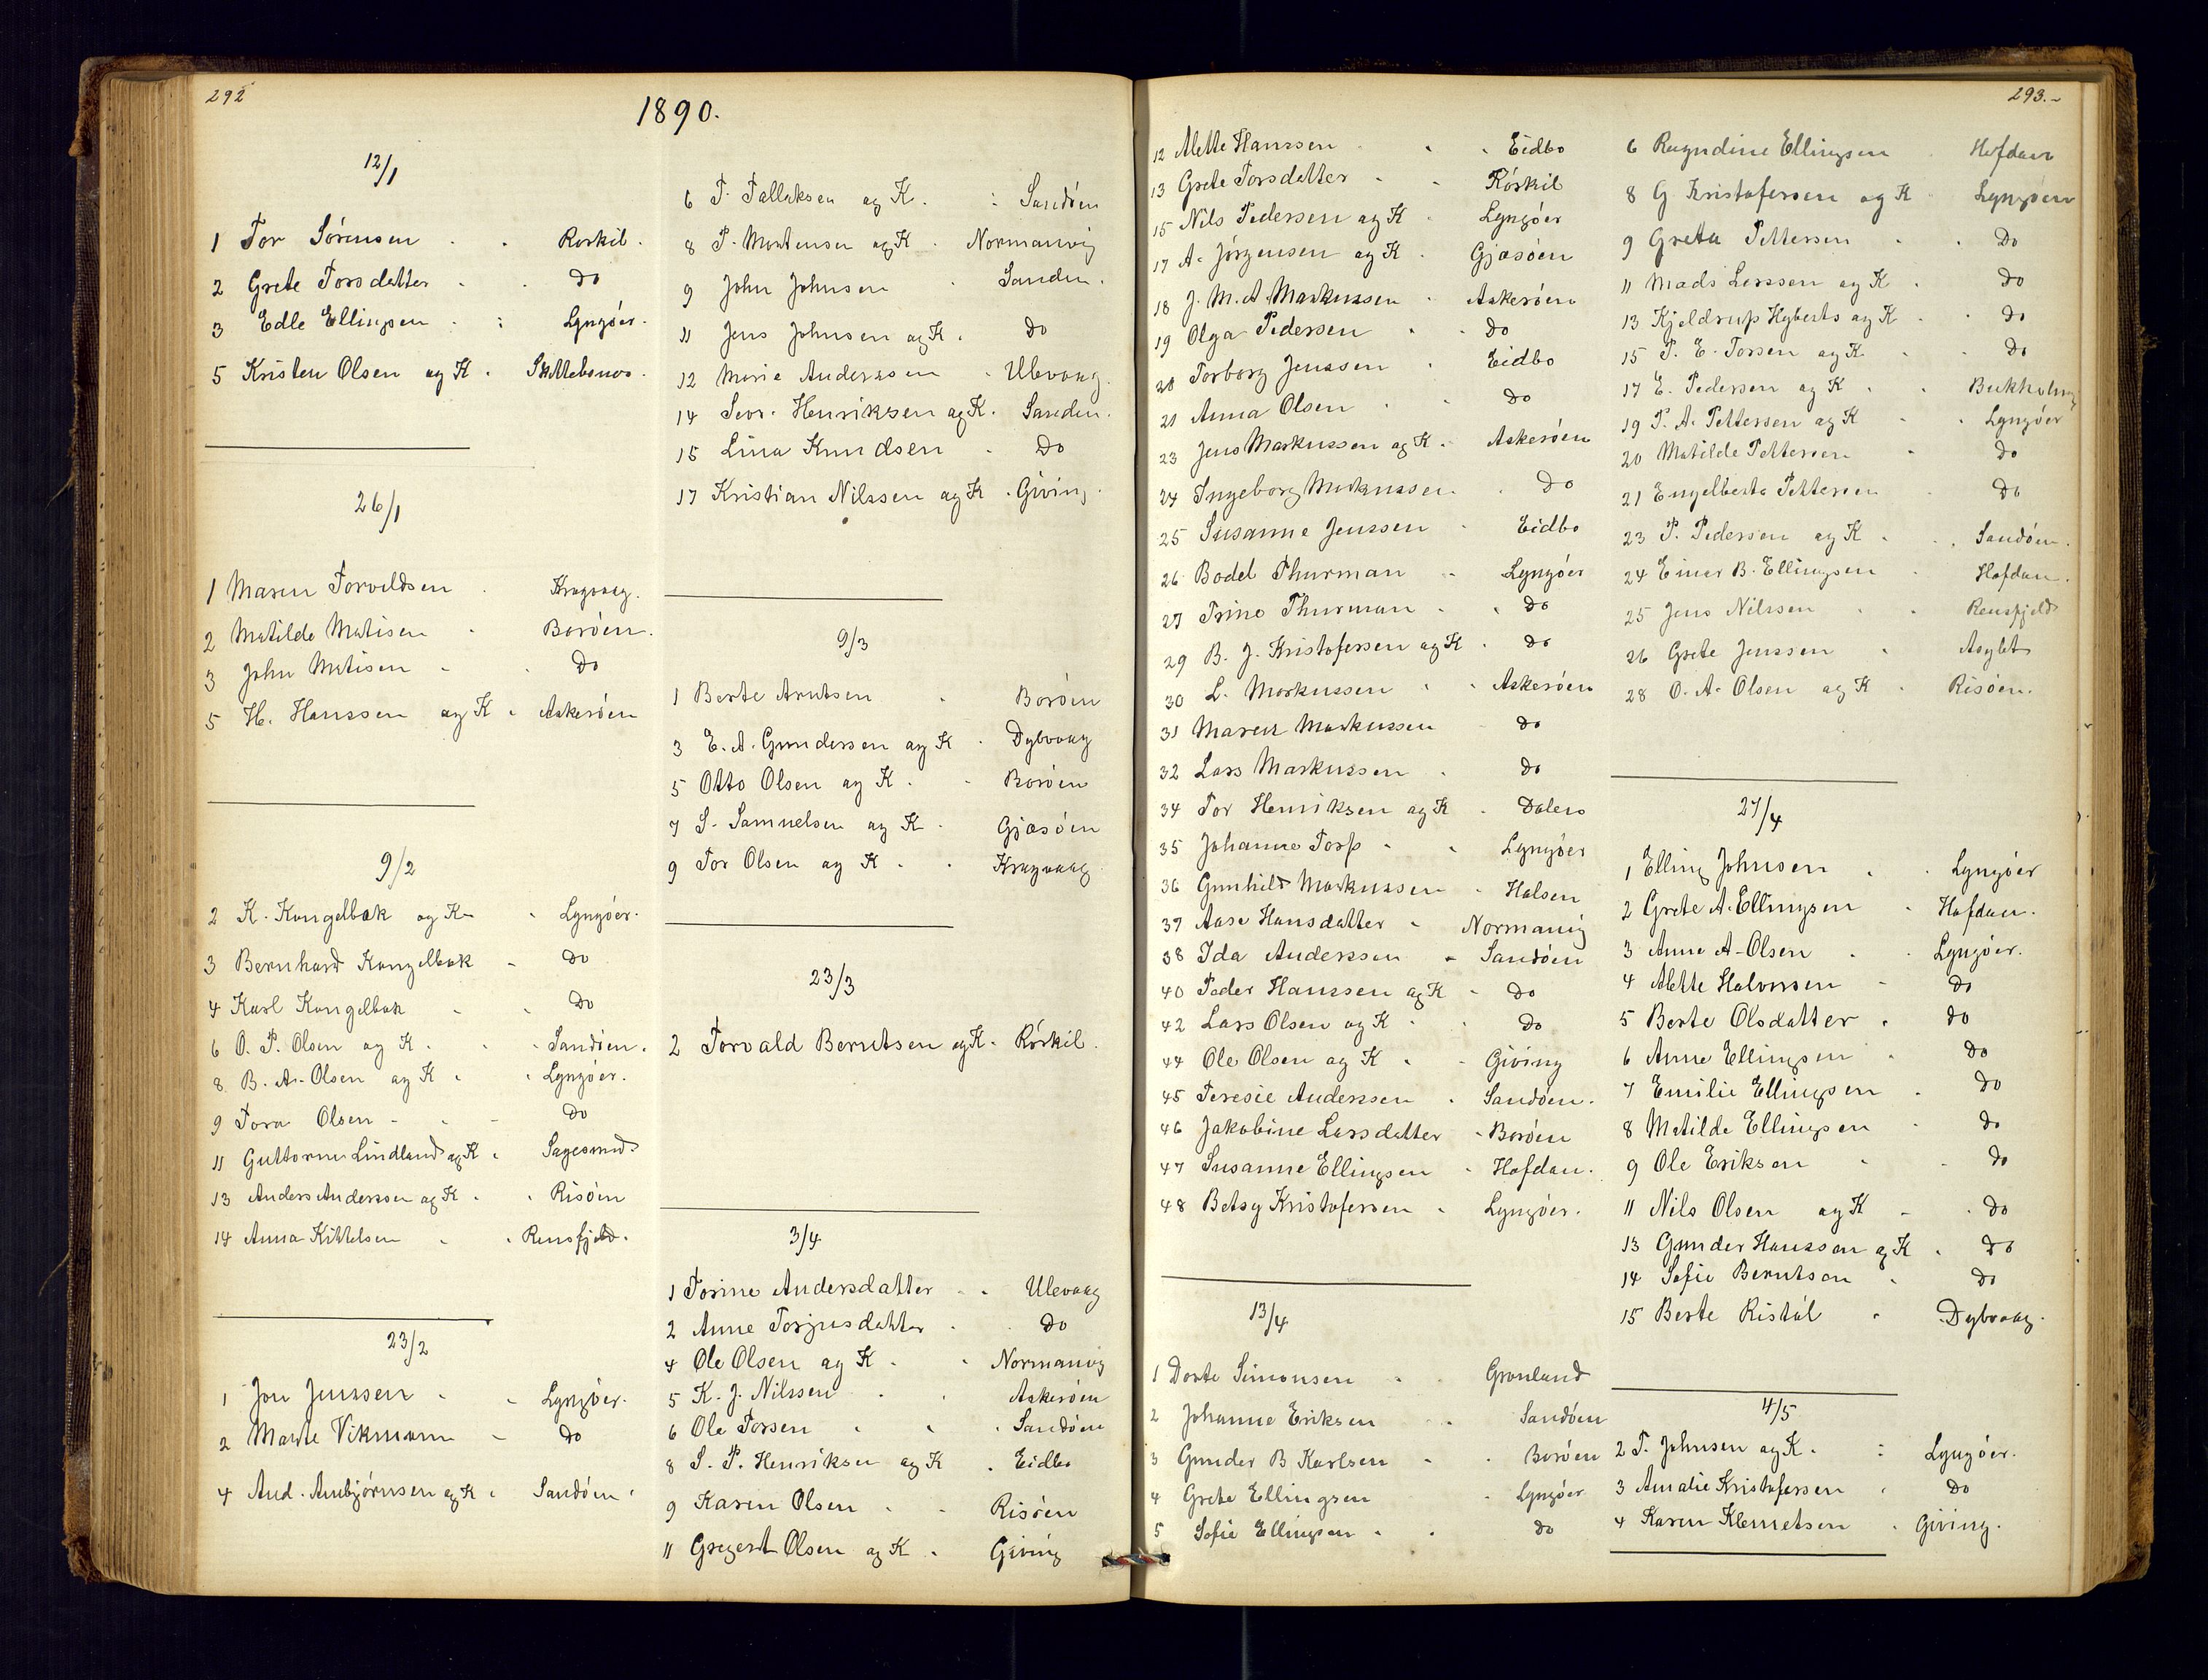 292
1890.
12/1
1 Tor Sörensen Rorkil.
2 Grete Torsdatter Do
3 Edle Ellingsen Lyngöer.
5 Kristen Olsen og K
26/1
1 Maren Torvildsen Kragvaag.
2 Matilde Matisen Boröen.
3 John Matisen Do
5 H. Hanssen og K Askeröen
9/2
2 K. Kongelbak og K Lyngöer.
3 Bernhard Kongelbak Do
4 Karl Kongelbak Do
6 O. P. Olsen og K Sandöen.
8 B. A. Olsen og K Lyngöer.
9 Tora Olsen Do
11 Guttorm Lindland og K Sagesund
13 Anders Anderssen og K Risöen
14 Anna Kittelsen Rensfjeld.
23/2
1 Jon Jenssen Lyngöer.
2 Marte Vikmann Do
4 And. Anbjörnsen og K Sandöen
6 T. Tallaksen og K. Sandöen
8 P. Mortensen og K Normanvig
9 John Johnsen Sanden.
11 Jens Johnsen og K. Do
12 Marie Anderssen Ulevaag.
14 Sevr. Henriksen og K. Sanden.
15 Lina Knudsen Do
17 Kristian Nilssen og K Giving.
9/3
1 Berte Arntsen Boröen
3 E. A. Gunderssen og K Dybvaag
5 Otto Olsen og K. Boröen
7 S. Samuelsen og K Gjæsöen
9 Tor Olsen og K Kragvaag
23/3
2 Torvald Berntsen og K. Rörkil.
3/4
1 Torine Andersdatter Ulevaag
2 Anne Torjusdatter Do
4 Ole Olsen og K Normanvig
5 K. J. Nilssen Askeröen
6 Ole Torsen Sandöen
8 S. P. Henriksen og K Eidbo
9 Karen Olsen Risöen
11 Gregert Olsen og K Giving
293.
12 Alette Hanssen Eidbo
13 Grete Torsdatter Rörkil
15 Nils Pedersen og K Lyngöer
17 A. Jörgensen og K Gjæsöen
18 J. M. A. Markussen Askeröen
19 Olga Pedersen Do
20 Torborg Jenssen Eidbo
21 Anna Olsen Do
23 Jens Markussen og K. Askeröen
24 Ingeborg Markussen Do
25 Susanne Jenssen Eidbo
26 Bodel Thurman Lyngöer
27 Trine Thurman Do
29 B. J. Kristofersen og K Do
30 L. Markussen Askeröen
31 Maren Markussen Do
32 Lars Markussen Do
34 Tor Henriksen og K Dalen
35 Johanne Torp Lyngöer
36 Gunhild Markussen Halsen
37 Aase Hansdatter Normanvig
38 Ida Anderssen Sandöen
40 Peder Hanssen og K Do
42 Lars Olsen og K Do
44 Ole Olsen og K Giving
45 Teresie Anderssen Sandöen.
46 Jakobine Larsdatter Boröen
47 Susanne Ellingsen Hofdan.
48 Betsy Kristofersen Lyngöer.
13/4
1 Dorte Simonsen Grönland
2 Johanne Eriksen Sandöen
3 Gunder B Karlsen Boröen
4 Grete Ellingsen Lyngöer
5 Sofie Ellingsen Do
6 Ragndine Ellingsen Hofdan
8 G Kristofersen og K Lyngöer
9 Greta Pettersen Do
11 Mads Larssen og K Do
13 Kjeldrup Hyberts og K Do
15 P. E. Torsen og K Do
17 E. Pedersen og K Bukholm
19 P. A. Pettersen og K Lyngöer
20 Matilde Pettersen Do
21 Engelberte Pettersen Do
23 P. Pedersen og K Sandöen.
24 Einar B. Ellingsen Hofdan.
25 Jens Nilssen Rensfjeld
26 Grete Jenssen Asylet
28 O. A. Olsen og K Risöen.
27/4
1 Elling Johnsen Lyngöer
2 Grete A. Ellingsen Hofdan.
3 Anne A. Olsen Lyngöer.
4 Alette Halvorsen Do
5 Berte Olsdatter Do
6 Anne Ellingsen Do
7 Emilie Ellingsen Do
8 Matilde Ellingsen Do
9 Ole Eriksen Do
11 Nils Olsen og K Do
13 Gunder Hanssen og K Do
14 Sofie Berntsen Do
15 Berte Ristöl Dybvaag.
4/5
2 T. Johnsen og K. Lyngöer.
3 Amalie Kristofersen Do
4 Karen Klemetsen Giving.